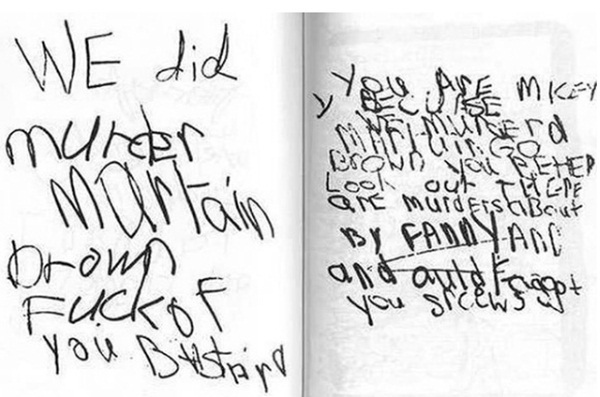 WE did
murder
martain
brown
Fuckof
you Bastard
you ARE micey
y BECUSE
WE murderd
MARTAIN GO
Brown you BETER
Look out THERE
are murders about
By FANNY AND
and auld Faggot
you srcews